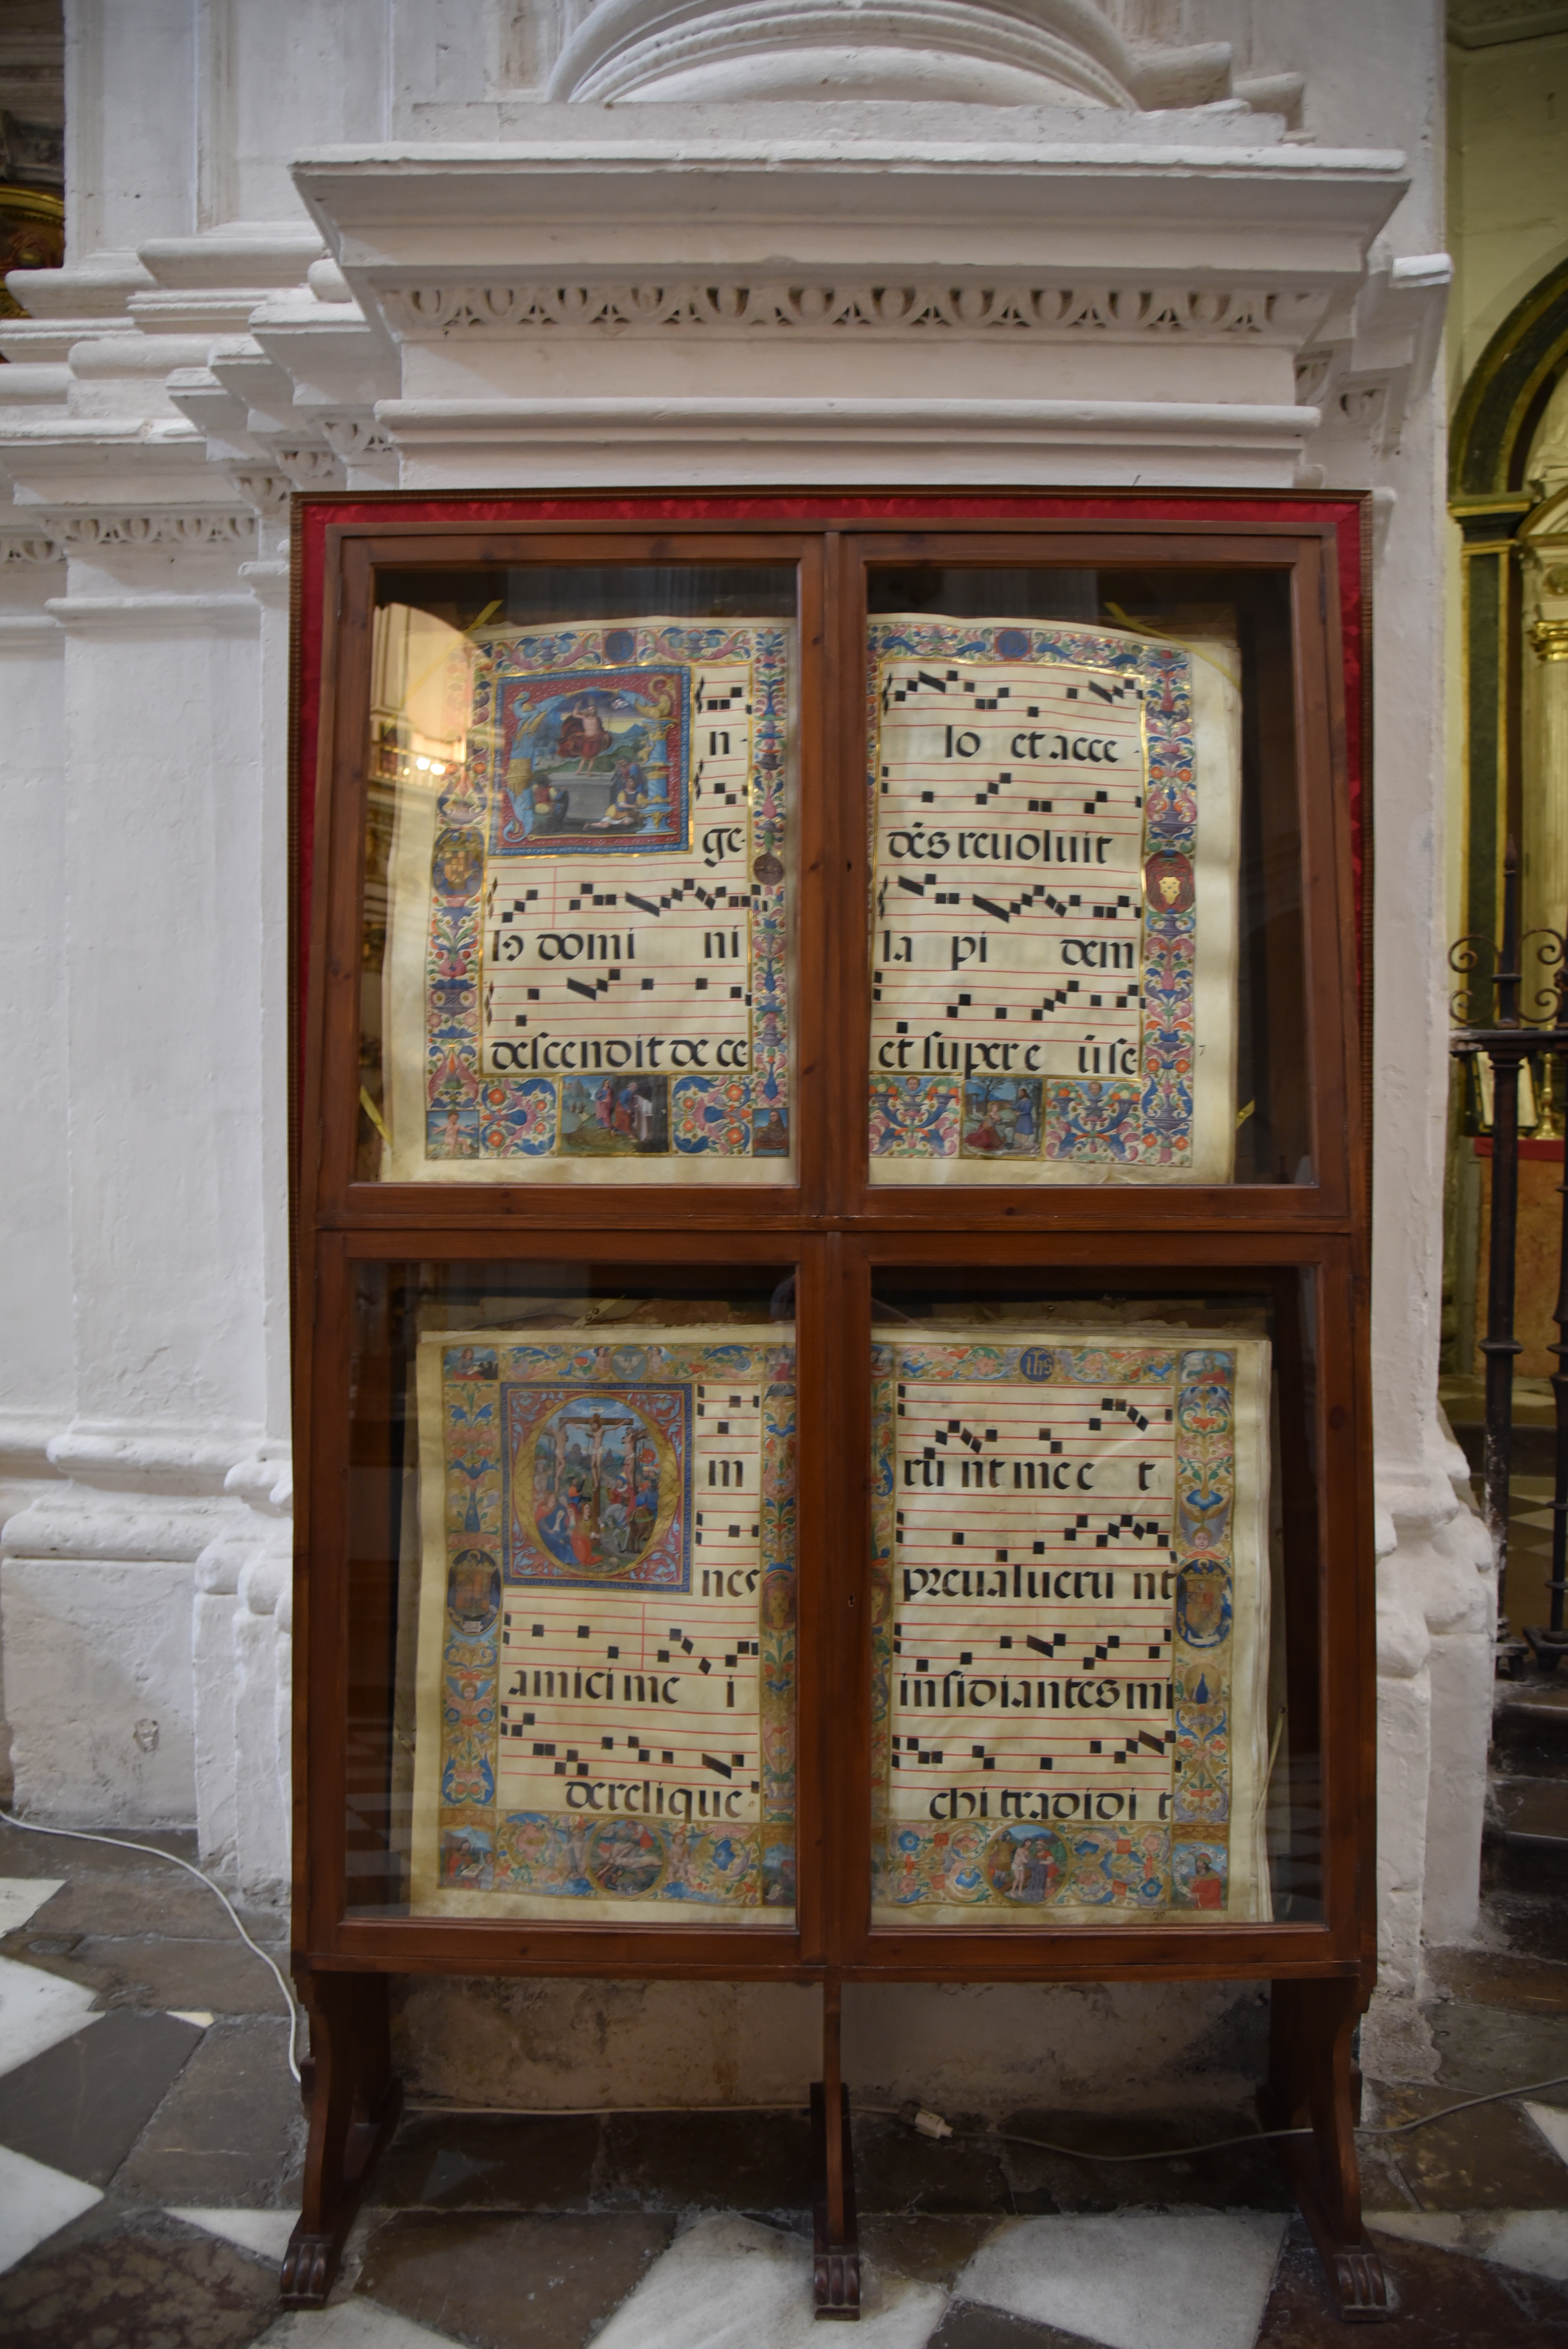 n-
ge-
lus domi ni
descendit de ce-
lo et acce-
dēs reuoluit
la pi dem
et super e ū se-
7
m
nes
amici me i
derelique
ihs
rū nt me e t
preualueru nt
insidiantes mi
chi tradidi t